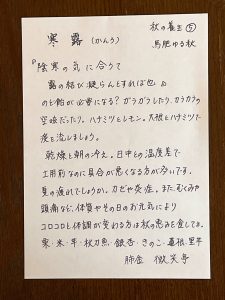 秋の養生⑤
馬肥ゆる秋
寒露(かんろ)
『陰寒の気に合って
露の結び凝らんとすれば也』
のど飴が必要になる?ガラガラしたり、カラカラの
空咳だったり。ハチミツとレモン。大根とハチミツで
痰を流しましょう。
乾燥と朝の冷え。日中との温度差で
土用前なのに具合が悪くなる方が多いです。
夏の疲れでしょうか。カゼや炎症。また、むくみや
頭痛など、体質やその日のお元気により
コロコロと体調が変わる方は秋の恵みを食してみ。
栗・米・芋・秋刀魚・銀杏・きのこ・蓮根・里芋
微笑亭